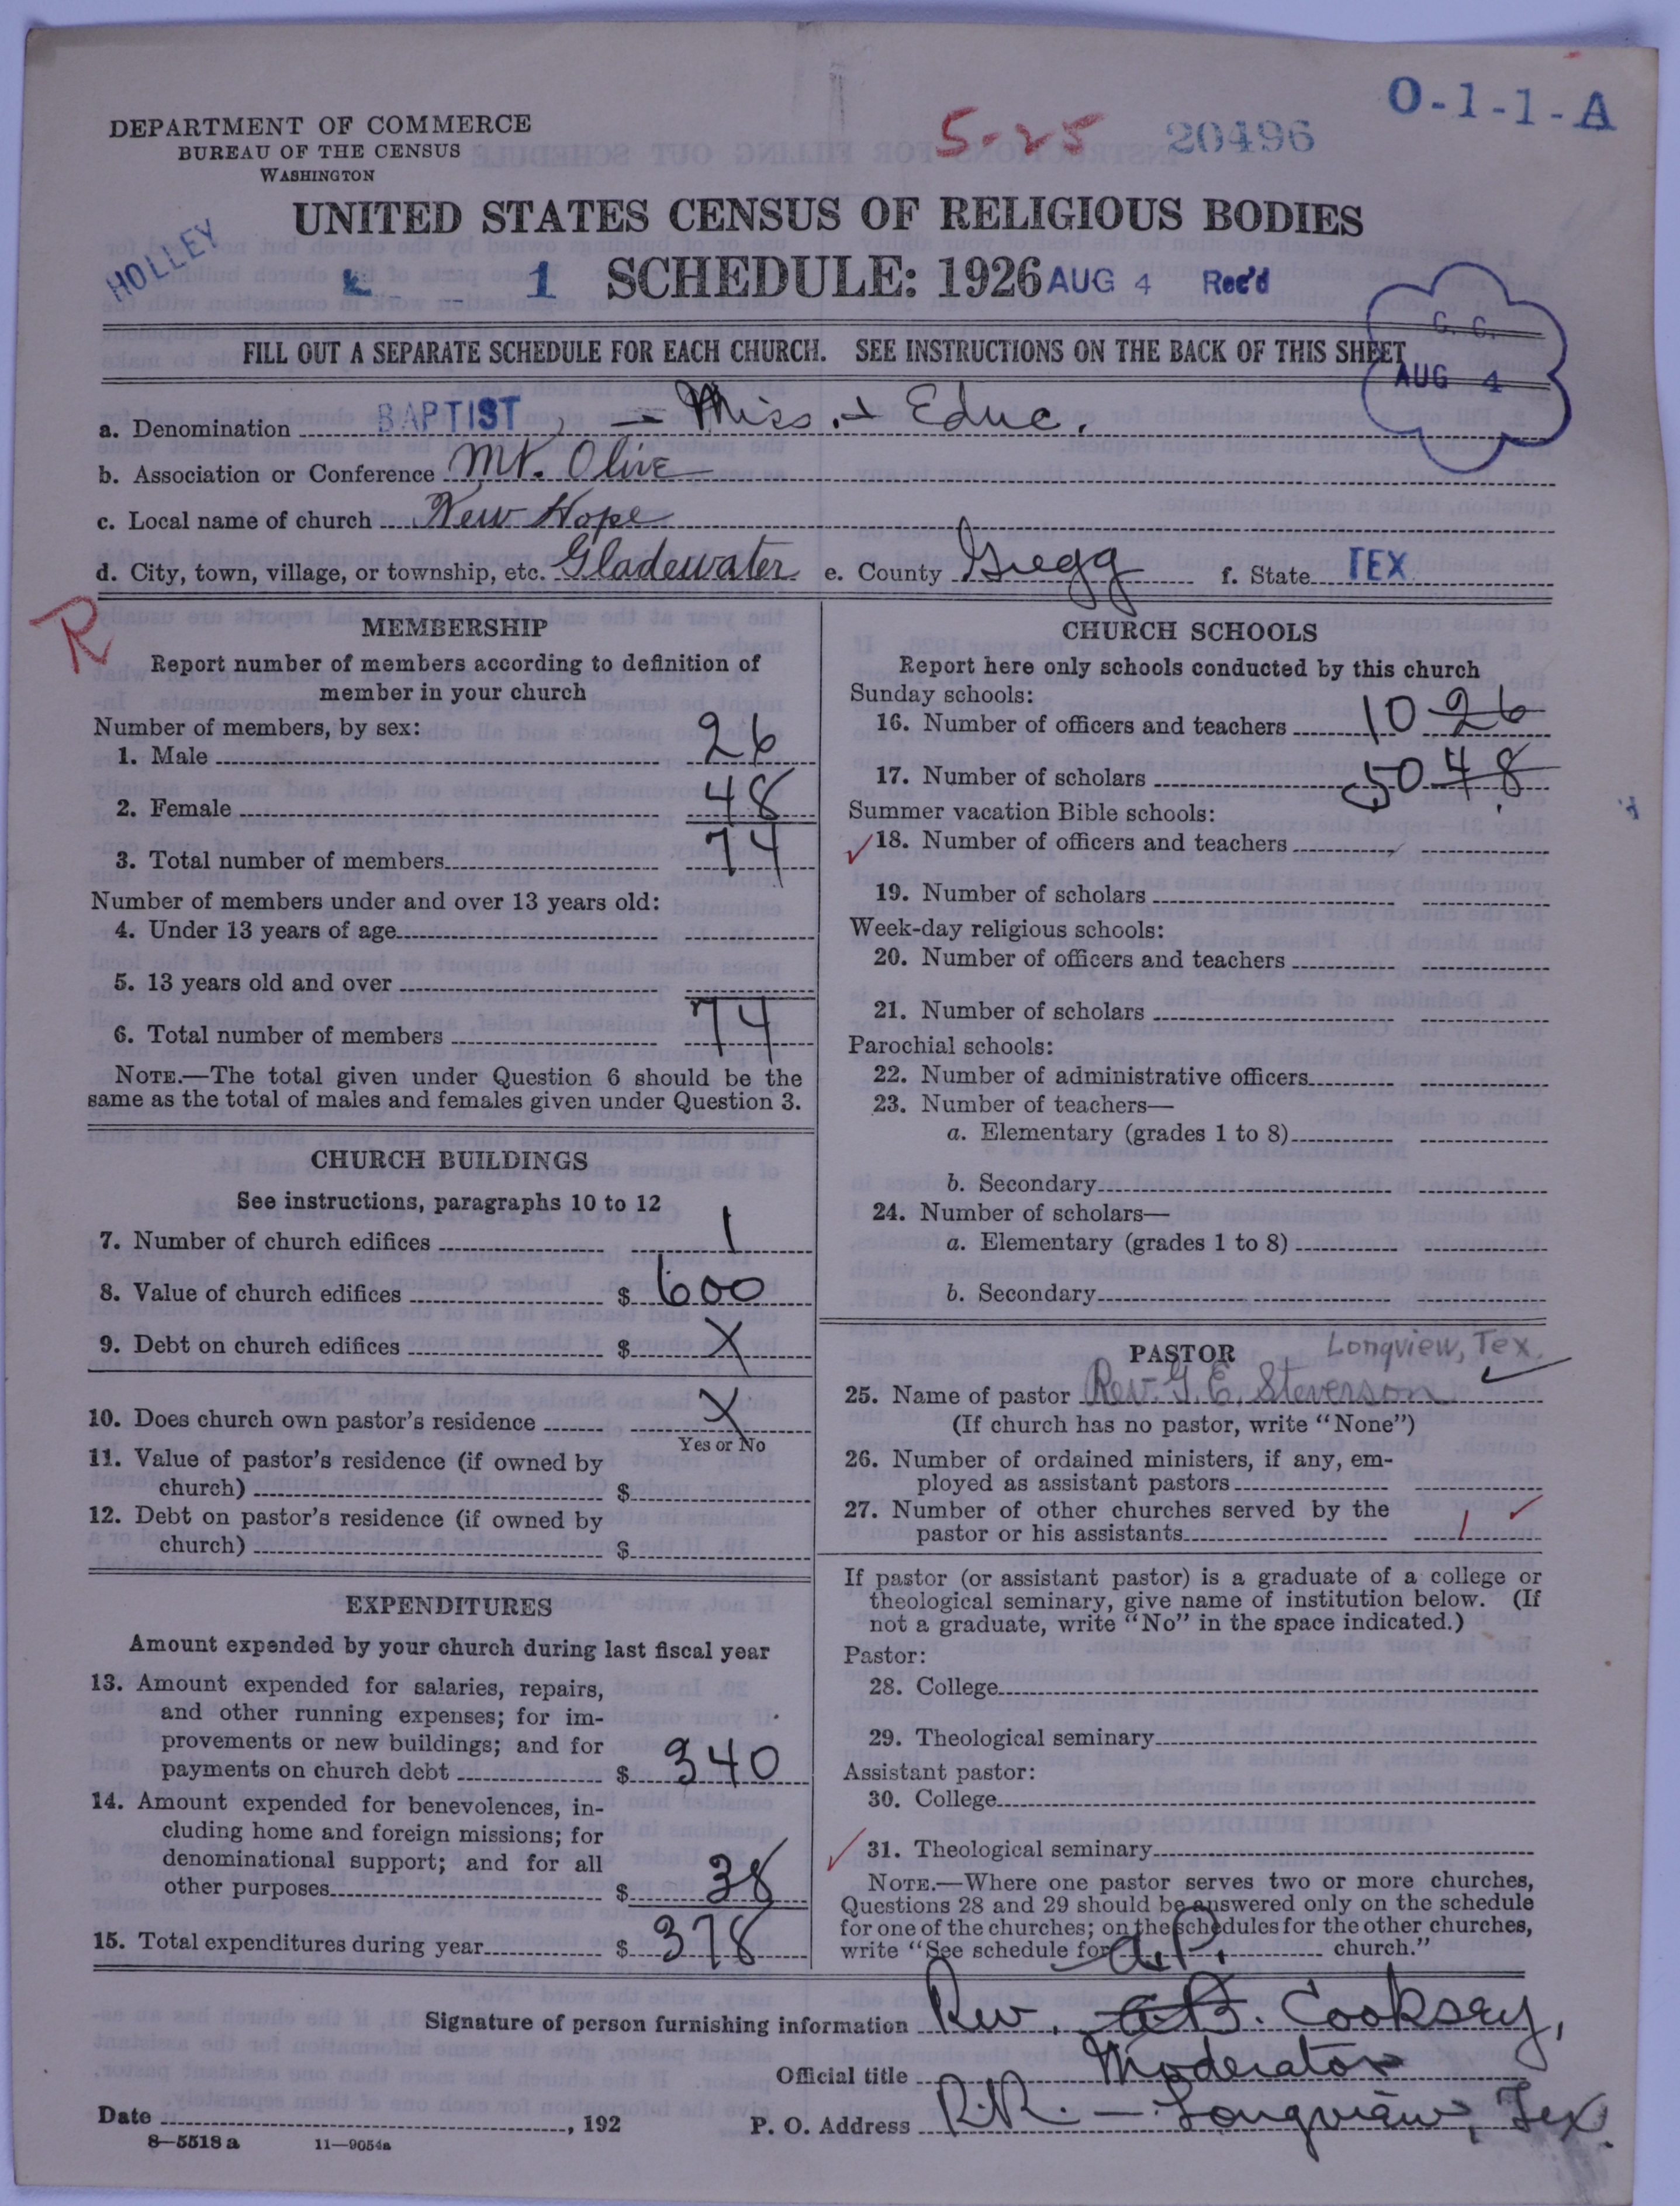 O-1-1-A
DEPARTMENT OF COMMERCE
BUREAU OF THE CENSUS
WASHINGTON
5-25 20496
UNITED STATES CENSUS OF RELIGIOUS BODIES
HOLLEY
1 SCHEDULE: 1926 AUG 4 Rec'd
G. C.
AUG 4
FILL OUT A SEPARATE SCHEDULE FOR EACH CHURCH. SEE INSTRUCTIONS ON THE BACK OF THIS SHEET
a. Denomination BAPTIST, - Miss. + Educ.
b. Association or Conference Mt. Olive
c. Local name of church New Hope
d. City, town, village, or township, etc. Gladewater e. County Gregg f. State TEX.
R
MEMBERSHIP
Report number of members according to definition of
member in your church
Number of members, by sex:
1. Male 26
2. Female 48
3. Total number of members 74
Number of members under and over 13 years old:
4. Under 13 years of age
5. 13 years old and over
6. Total number of members 74
NOTE.—The total given under Question 6 should be the
same as the total of males and females given under Question 3.
CHURCH BUILDINGS
See instructions, paragraphs 10 to 12
7. Number of church edifices 1
8. Value of church edifices $ 600
9. Debt on church edifices $ X
10. Does church own pastor's residence X
Yes or No
11. Value of pastor's residence (if owned by
church) $
12. Debt on pastor's residence (if owned by
church) $
EXPENDITURES
Amount expended by your church during last fiscal year
13. Amount expended for salaries, repairs,
and other running expenses; for im-
provements or new buildings; and for
payments on church debt $ 340
14. Amount expended for benevolences, in-
cluding home and foreign missions; for
denominational support; and for all
other purposes $ 38
15. Total expenditures during year $ 378
CHURCH SCHOOLS
Report here only schools conducted by this church
Sunday schools:
16. Number of officers and teachers 10 26
17. Number of scholars 50 48
Summer vacation Bible schools:
18. Number of officers and teachers
19. Number of scholars
Week-day religious schools:
20. Number of officers and teachers
21. Number of scholars
Parochial schools:
22. Number of administrative officers
23. Number of teachers—
a. Elementary (grades 1 to 8)
b. Secondary
24. Number of scholars—
a. Elementary (grades 1 to 8)
b. Secondary
PASTOR Longview, Tex.
25. Name of pastor Rev. G. E. Steverson
(If church has no pastor, write "None")
26. Number of ordained ministers, if any, em-
ployed as assistant pastors
27. Number of other churches served by the
pastor or his assistants 1
If pastor (or assistant pastor) is a graduate of a college or
theological seminary, give name of institution below. (If
not a graduate, write "No" in the space indicated.)
Pastor:
28. College
29. Theological seminary
Assistant pastor:
30. College
31. Theological seminary
NOTE.—Where one pastor serves two or more churches,
Questions 28 and 29 should be answered only on the schedule
for one of the churches; on the schedules for the other churches,
write "See schedule for church."
a.P.
Signature of person furnishing information Rev. a.B. Cooksey,
Official title Moderator
Date , 192 P. O. Address R.R. - Longview, Tex.
8—5518 a 11—9054a